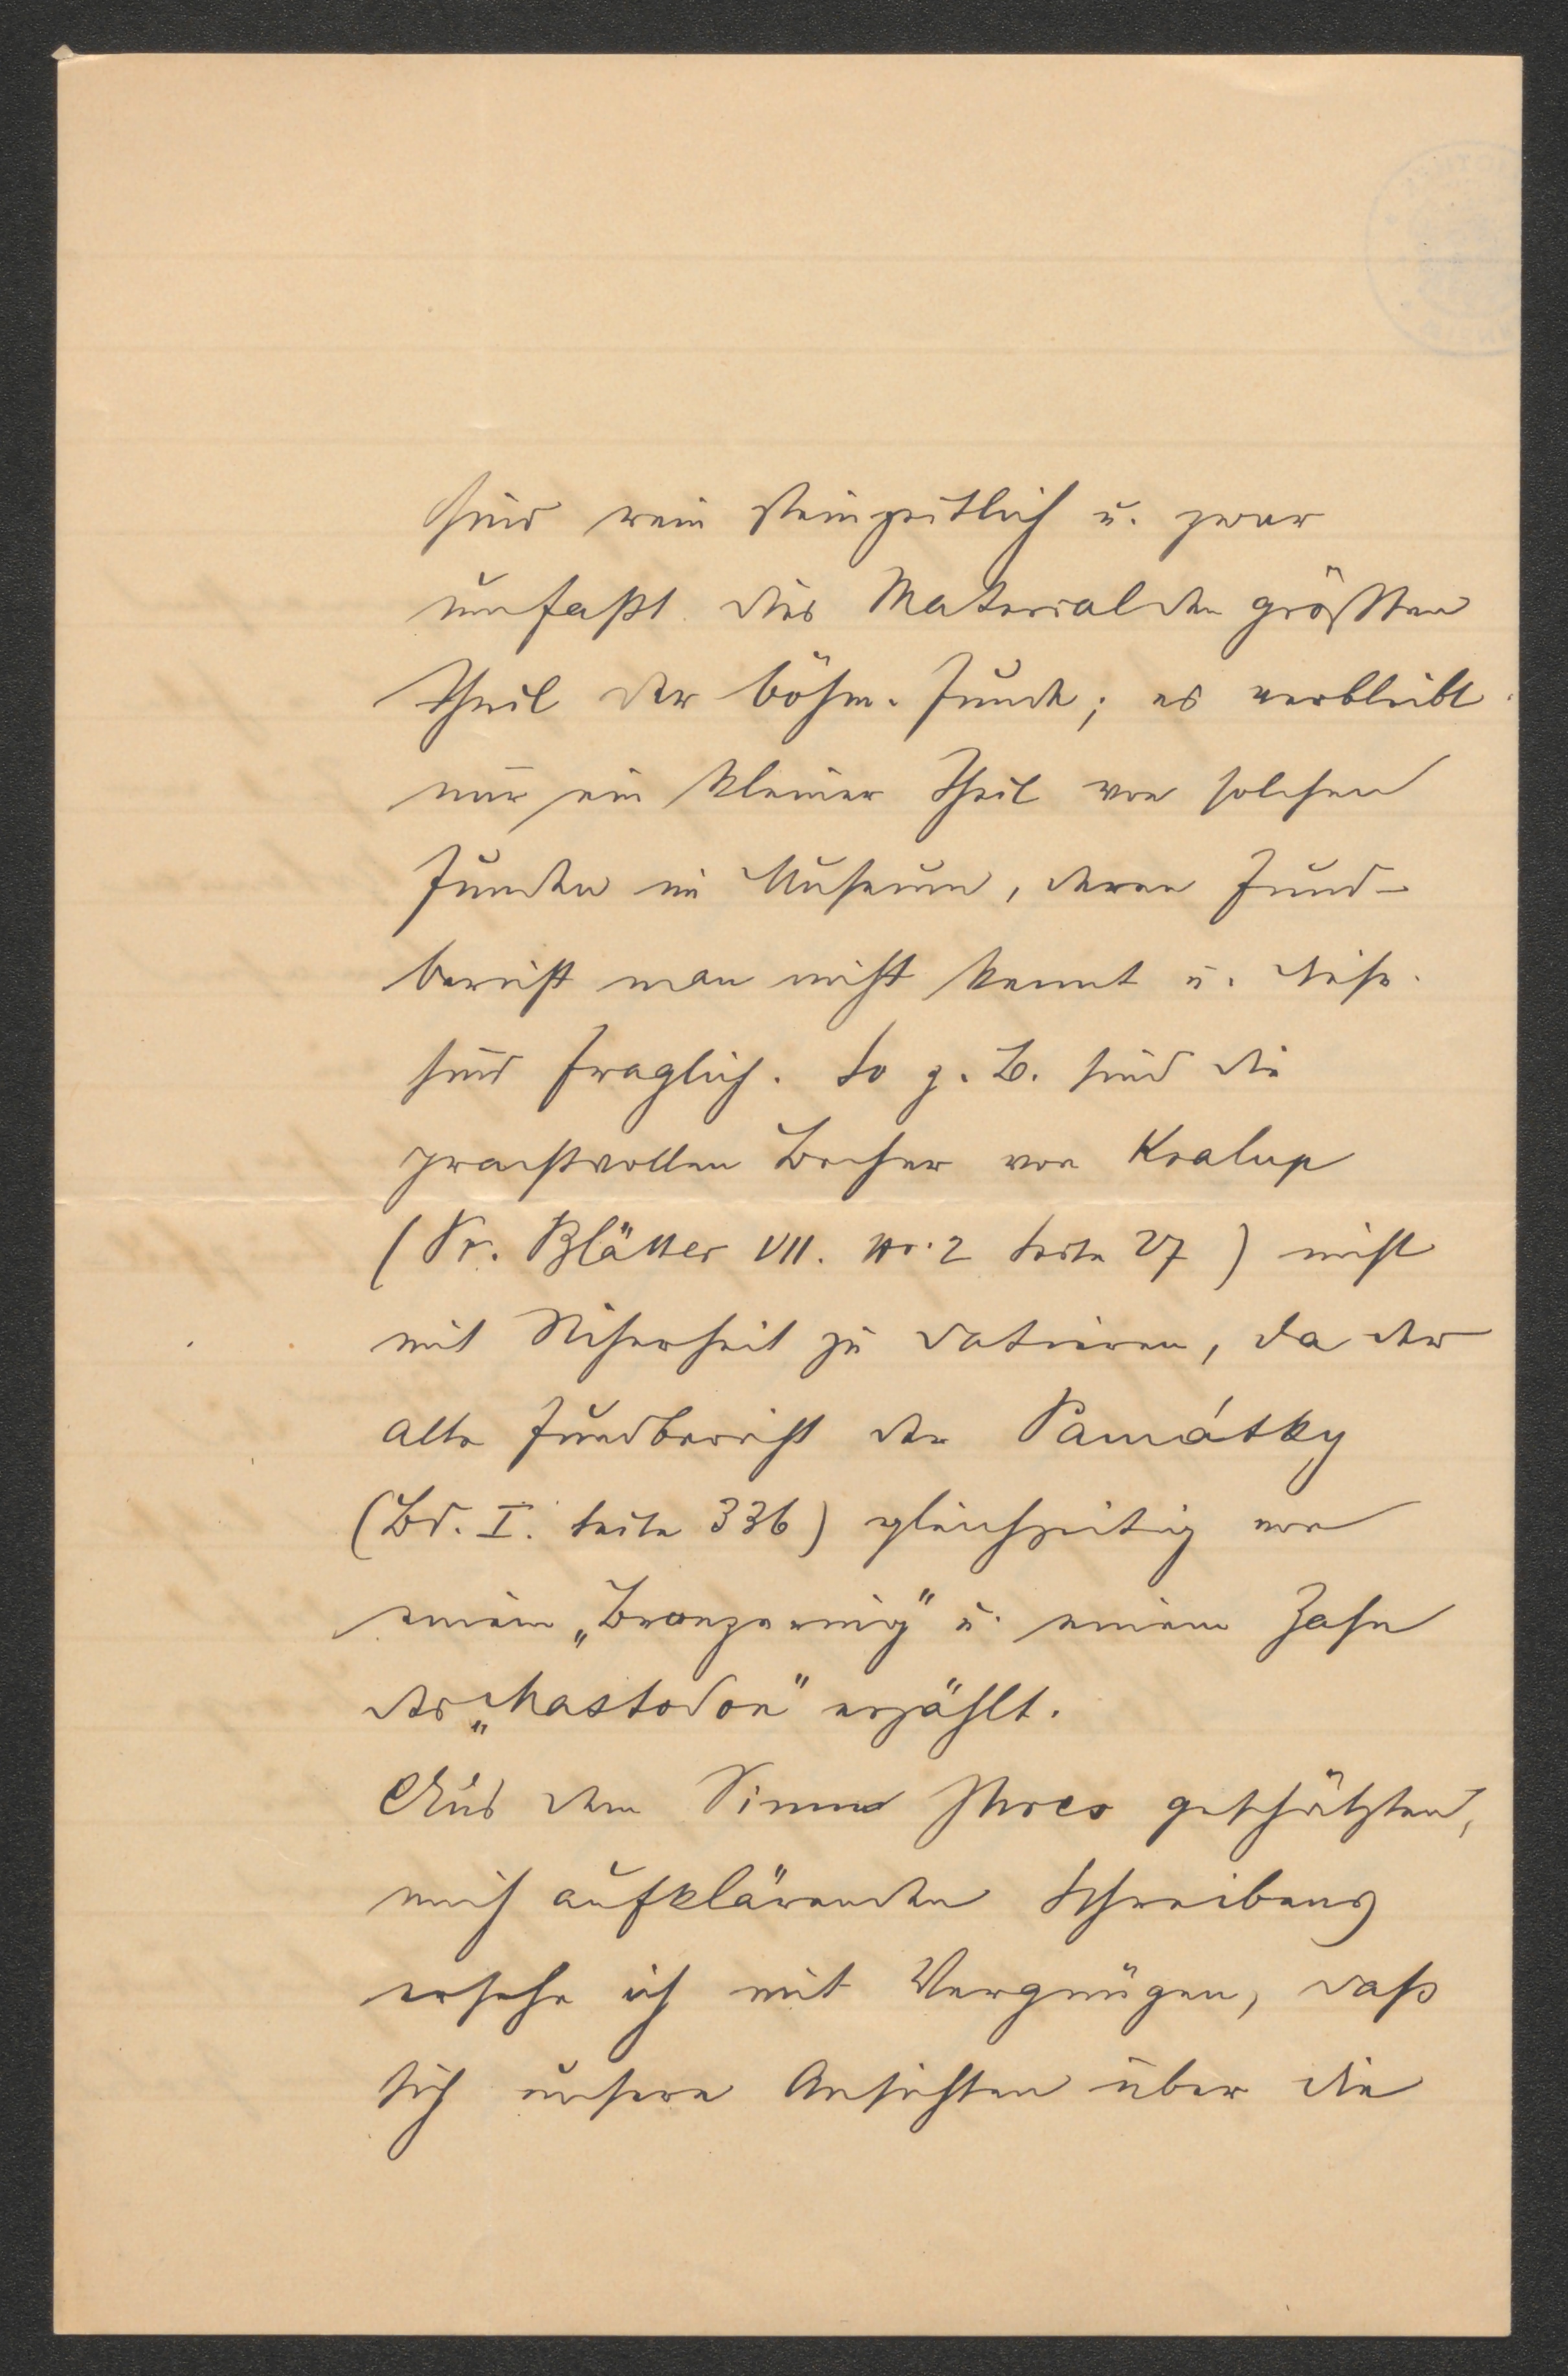 sind rein steinzeitlich u. zwar
umfaßt dies Material den größten
Theil der böhm. Funde; es verbleibt
nur ein kleiner Theil von solchen
Funden im Museum, deren Fund-
bericht man nicht kennt u. diese
sind fraglich. So z. B. sind die
prachtvollen Becher von Kralup
(Pr. Blätter VII. Nr. 2 Seite 27) nicht
mit Sicherheit zu datieren, da der
alte Fundbericht der Památky
(Bd. I. Seite 336) gleichzeitig von
einem „Bronzering" u. einem Zahn
des „Mastodon" erzählt.
Aus dem Sinne Ihres geschätzten,
mich aufklärenden Schreibens
ersehe ich mit Vergnügen, daß
sich unsere Ansichten über die